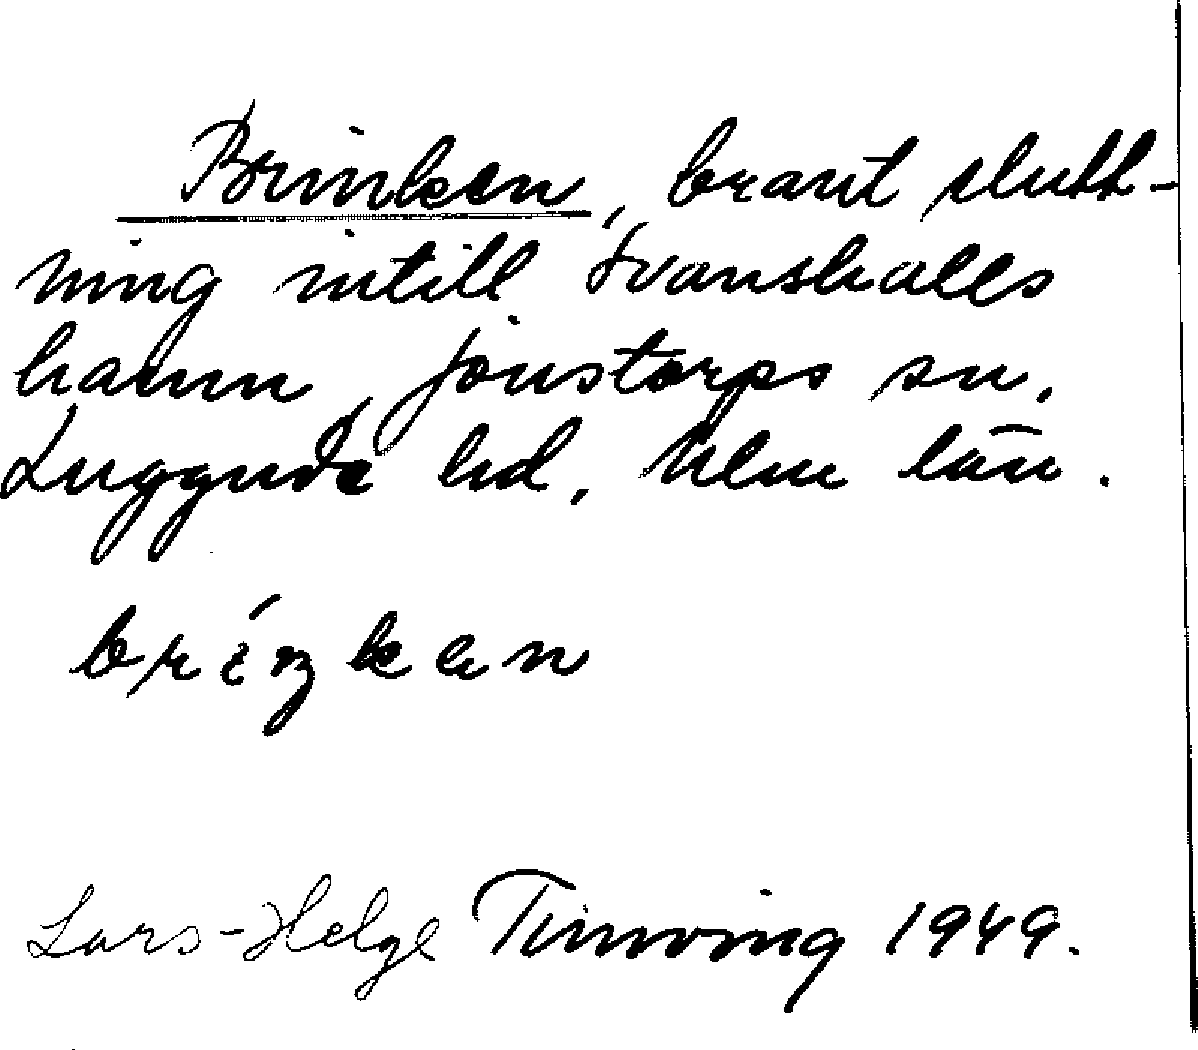 Brinken, brant slutt-
ning intill Svanshalls
hamn, Jonstorps sn,
Luggude hd, Mlm län.
bríŋken
Lars-Helge Tunving 1949.